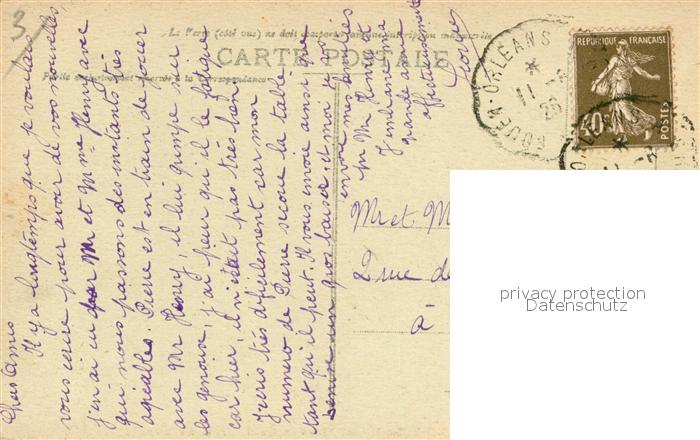 3
Le Verso (côté vus) ne doit comporter aucune inscription manuscrite
CARTE POSTALE
Partie exclusivement réservée à la correspondance.
Chers Amis
Il y a longtemps que je voulais
vous écrire pour avoir de vos nouvelles,
j'en ai eu par Mr et Mme Henry avec
qui nous passons des instants très
agréables. Pierre est en train de jouer
avec Mr Henry, il lui grimpe sur
les genoux, j'ai peur qu'il le fatigue
car hier, il n'était pas très bien.
J'écris très dificilement car mon
numero de Pierre secoue la table
tant qu'il peut. Il vous envoie ainsi que
un gros baiser et moi je vous
envoie mes amitiés
pr Mr Henry
J'embrasse la
grande amie
affectueusement
ORLÉANS
11
35
RÉPUBLIQUE FRANÇAISE
40c
POSTES
ORLÉANS
Mr et M
2 rue de
à
privacy protection
Datenschutz